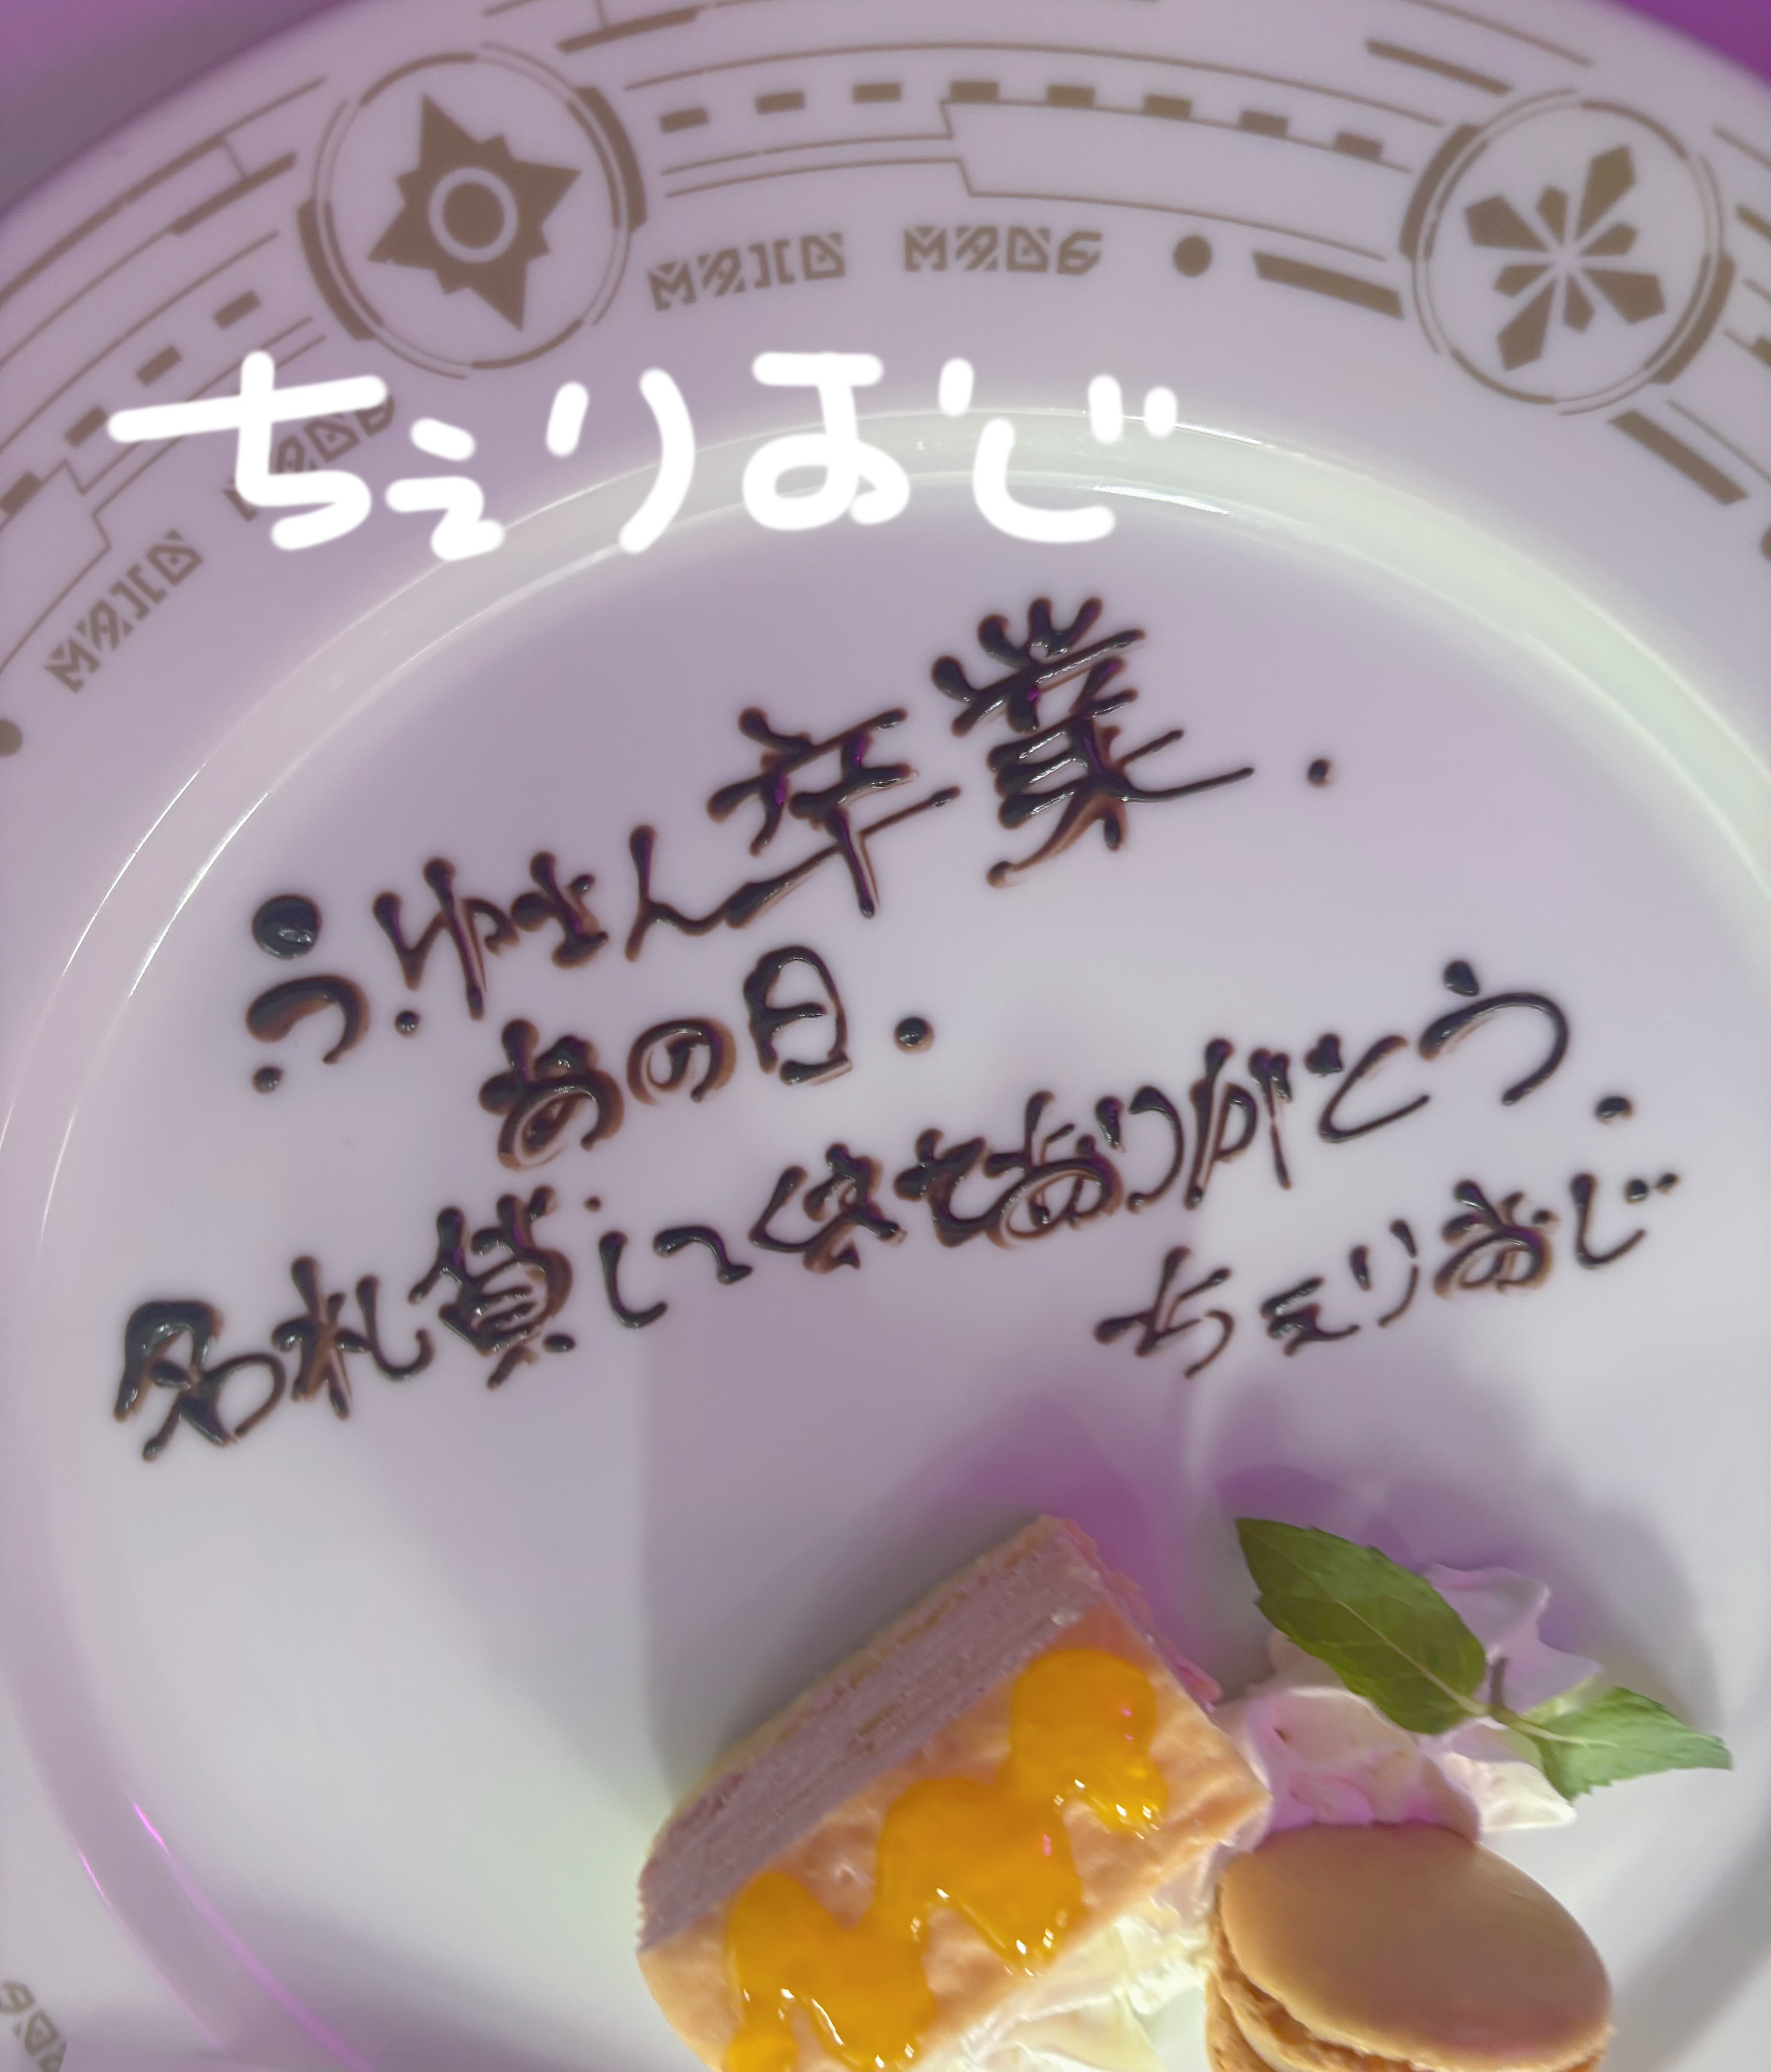 MAID MADE
MAID MADE
ちぇりおじ
う.ゆまん卒業.
あの日.
名札貸してくれてありがとう.
ちぇりおじ